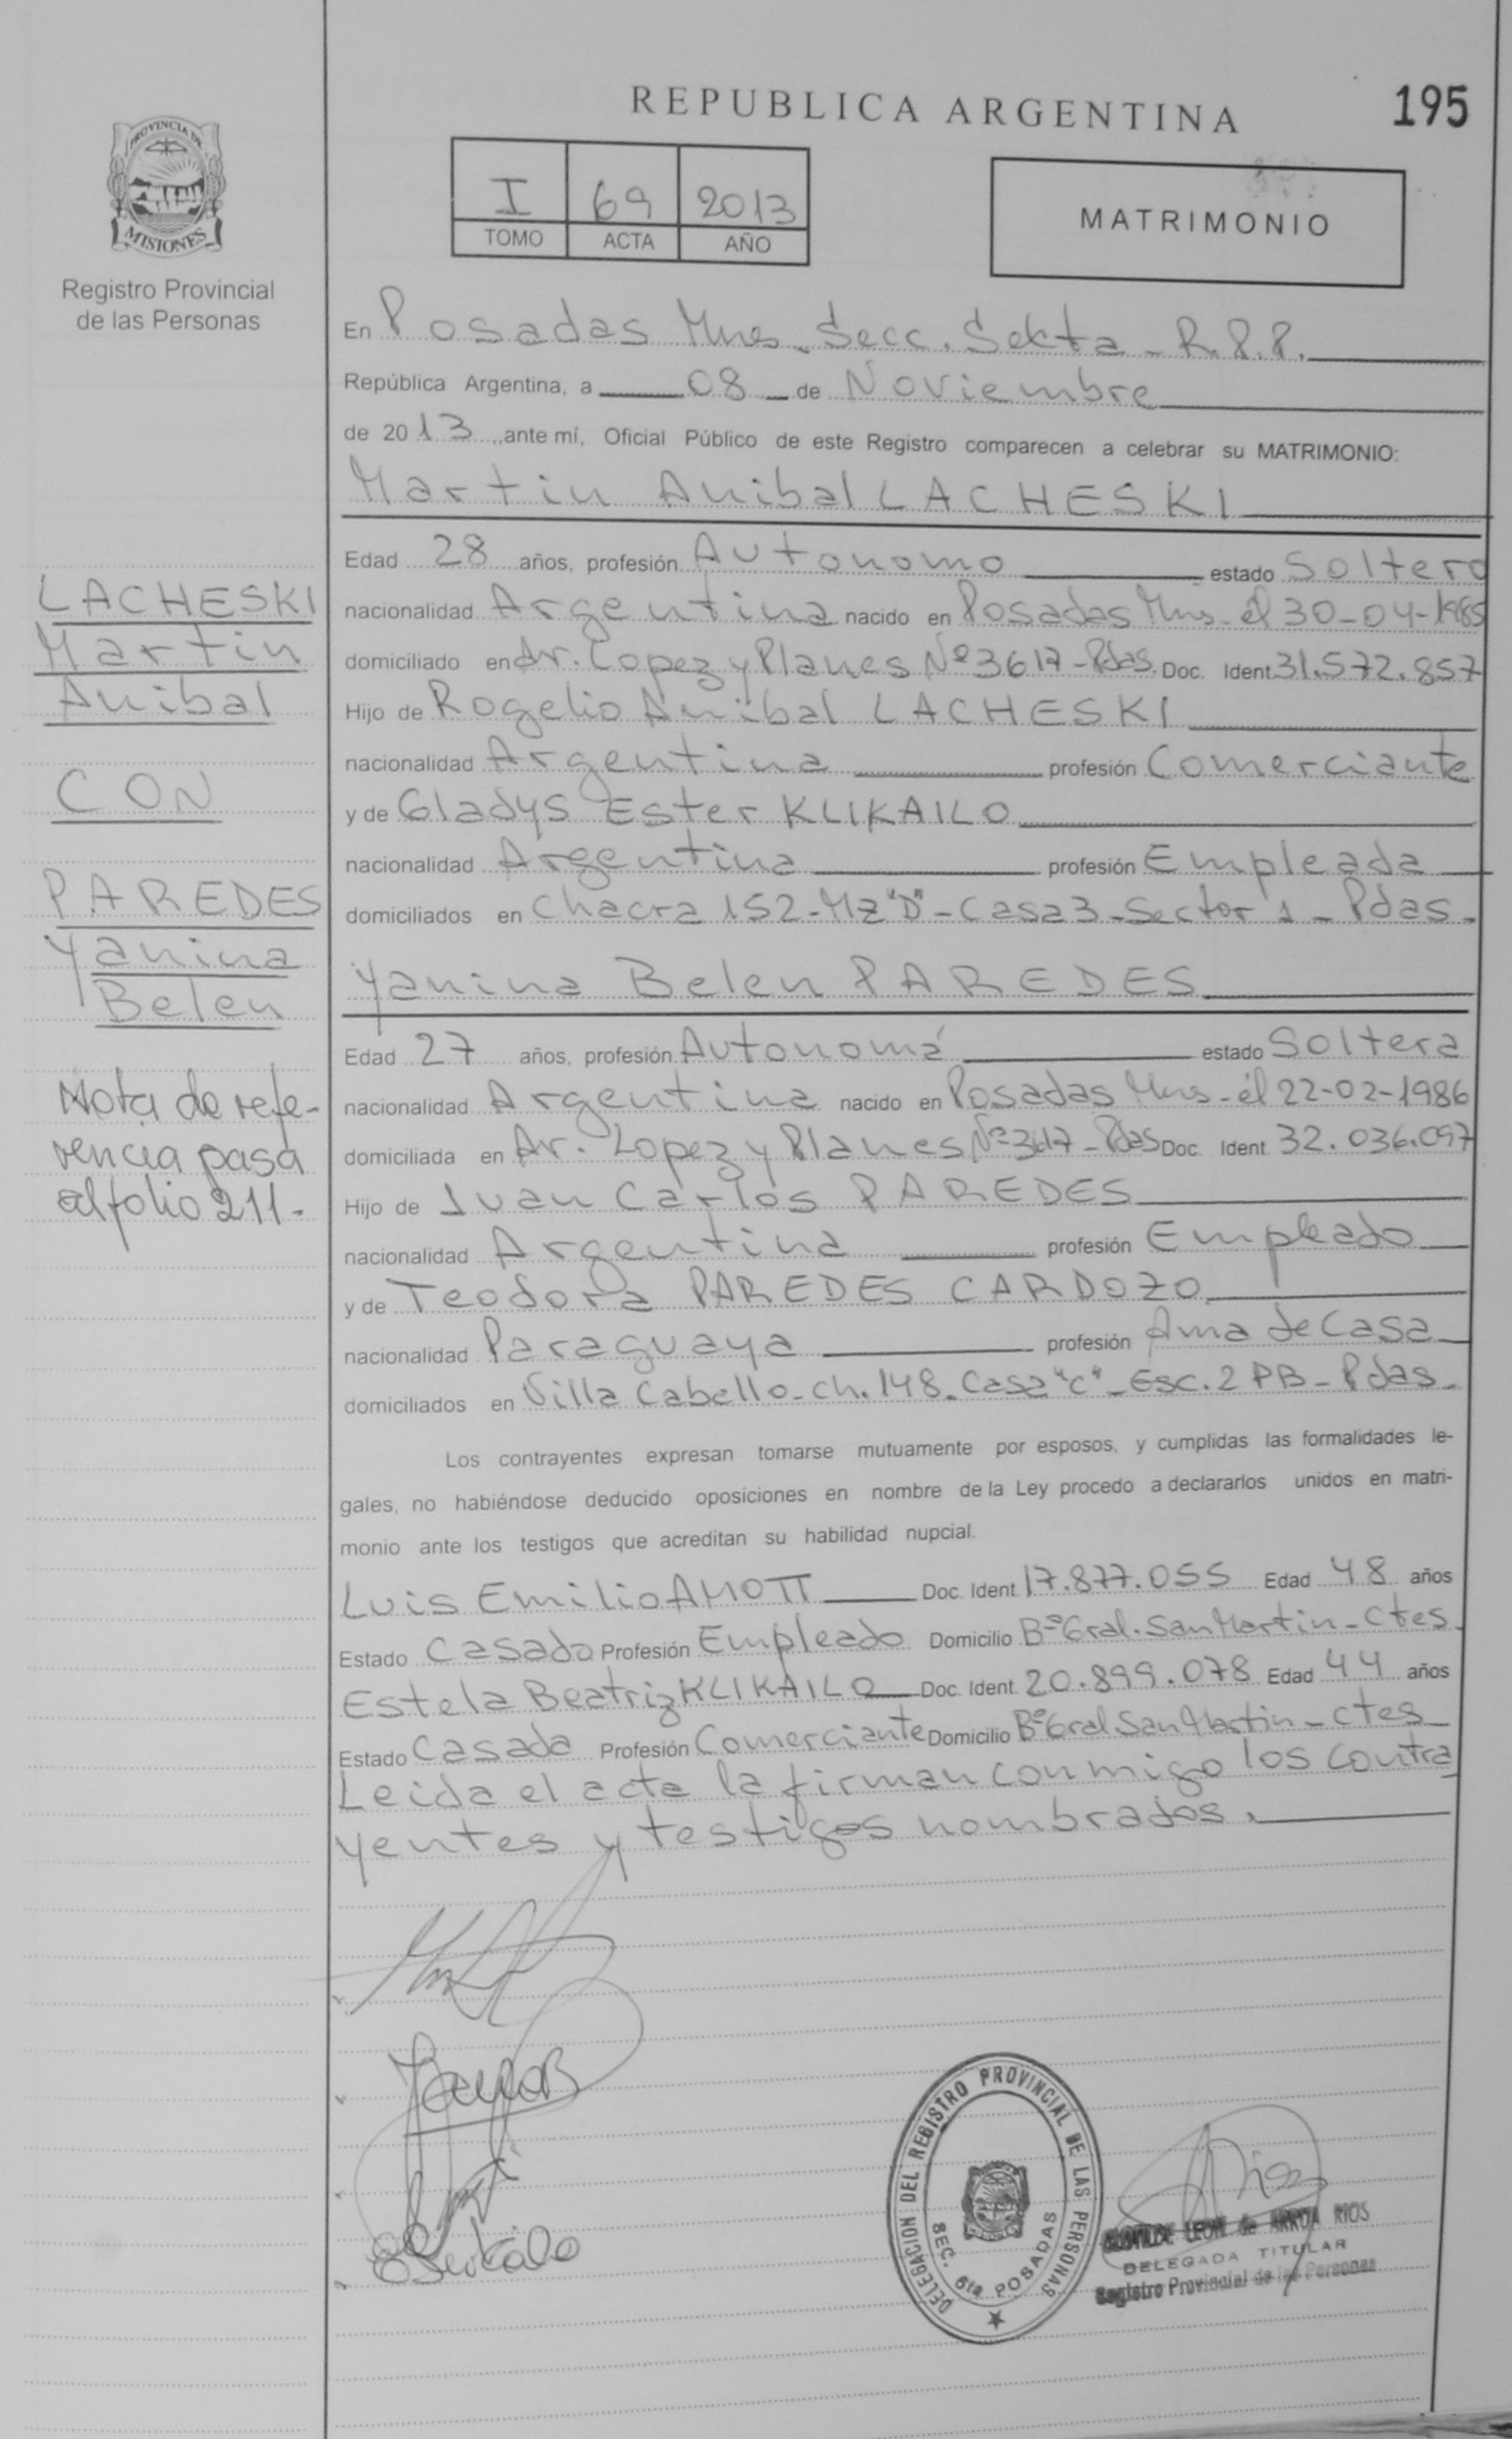 REPUBLICA ARGENTINA
195
PROVINCIA DE
MISIONES
Registro Provincial
de las Personas
I 69 2013
TOMO ACTA AÑO
MATRIMONIO
En Posadas Mnes. Secc. Sekta - R.P.P.
República Argentina, a 08 de Noviembre
de 2013, ante mí, Oficial Público de este Registro comparecen a celebrar su MATRIMONIO:
Martin Anibal LACHESKI
Edad 28 años, profesión Autonomo estado Soltero
nacionalidad Argentina nacido en Posadas Mns - él 30-04-1985
domiciliado en Av. Lopez y Planes Nº 3617 - Pdas. Doc. Ident 31.572.857
Hijo de Rogelio Anibal LACHESKI
nacionalidad Argentina profesión Comerciante
y de Gladys Ester KLIKAILO
nacionalidad Argentina profesión Empleada
domiciliados en Chacra 152 - Mz "D" - Casa 3 - Sector 1 - Pdas.
Yanina Belen PAREDES
Edad 27 años, profesión Autonomá estado Soltera
nacionalidad Argentina nacido en Posadas Mns - él 22-02-1986
domiciliada en Av. Lopez y Planes Nº 3617 - Pdas Doc. Ident. 32.036.097
Hijo de Juan Carlos PAREDES
nacionalidad Argentina profesión Empleado
y de Teodora PAREDES CARDOZO
nacionalidad Paraguaya profesión Ama de Casa
domiciliados en Villa Cabello - Ch. 148 - Casa "C" - Esc. 2 PB - Pdas -
Los contrayentes expresan tomarse mutuamente por esposos, y cumplidas las formalidades le-
gales, no habiéndose deducido oposiciones en nombre de la Ley procedo a declararlos unidos en matri-
monio ante los testigos que acreditan su habilidad nupcial.
Luis Emilio AMOTT Doc. Ident. 17.877.055 Edad 48 años
Estado Casado Profesión Empleado Domicilio Bº Gral. San Martin - Ctes
Estela Beatriz KLIKAILO Doc. Ident. 20.899.078 Edad 44 años
Estado Casada Profesión Comerciante Domicilio Bº Gral. San Martin - Ctes
Leida el acta la firman conmigo los contra
yentes y testigos nombrados.
LACHESKI
Martin
Anibal
CON
PAREDES
Yanina
Belen
Nota de refe-
rencia pasa
al folio 211.
DELEGACION DEL REGISTRO PROVINCIAL DE LAS PERSONAS
SEC. 6ta POSADAS
LEONI de ARRUA RIOS
DELEGADA TITULAR
Registro Provincial de las Personas